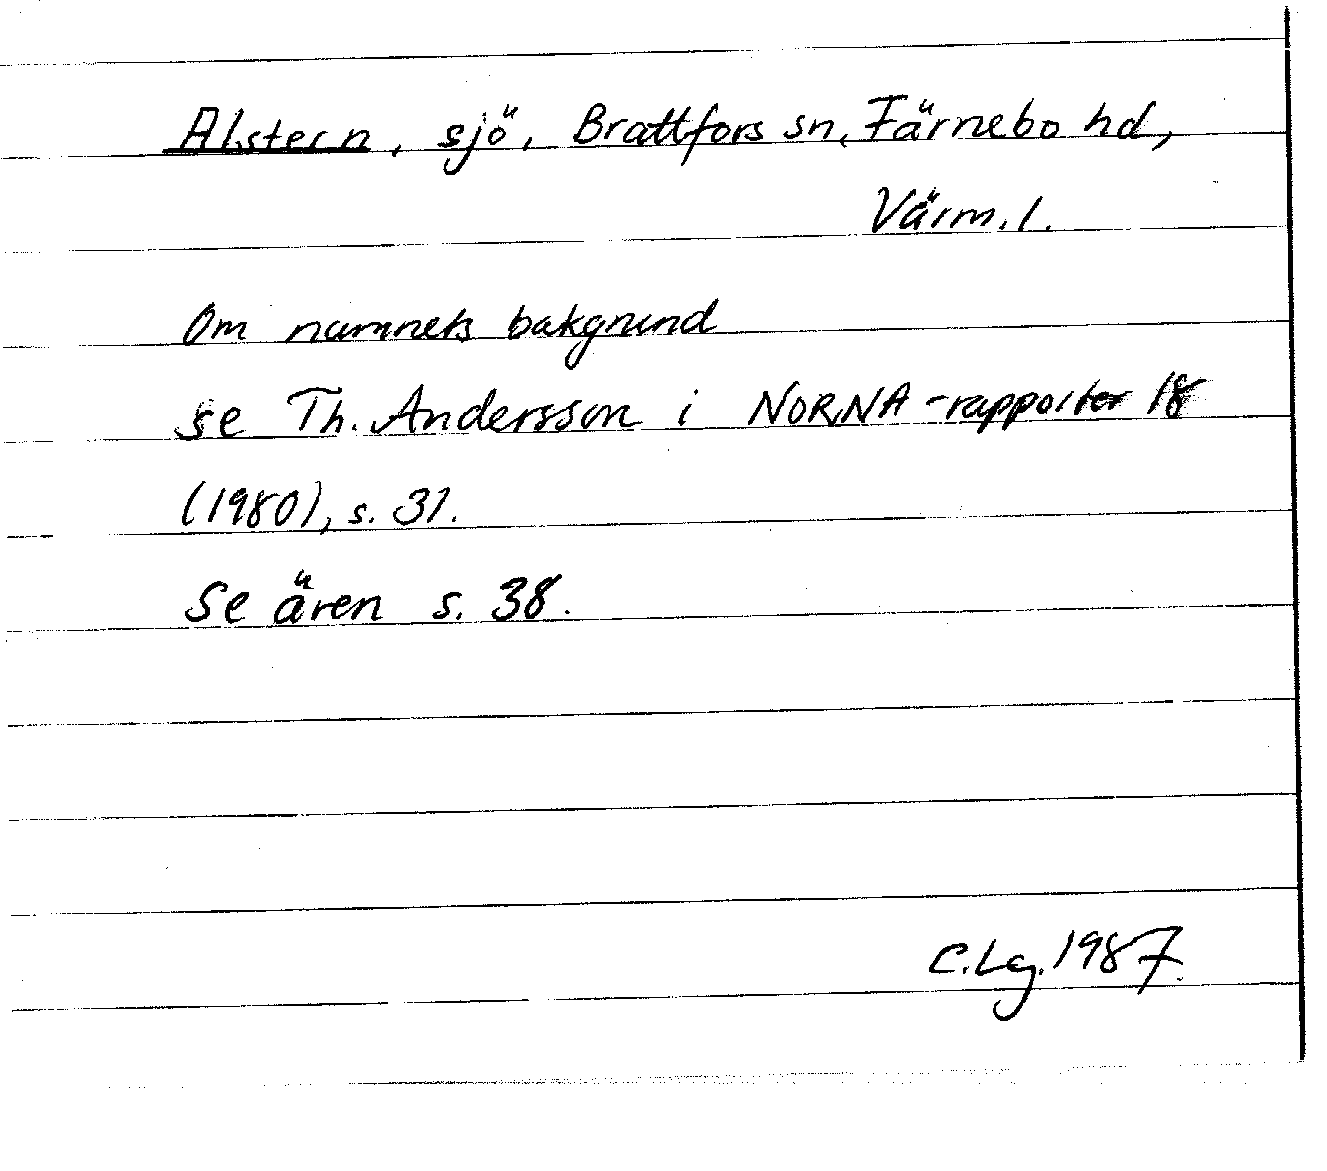 Alstern, sjö, Brattfors sn, Färnebo hd,
Värml.
Om namnets bakgrund
se Th. Andersson i NORNA-rapporter 18
(1980), s. 31.
Se även s. 38.
C. Lg. 1987.